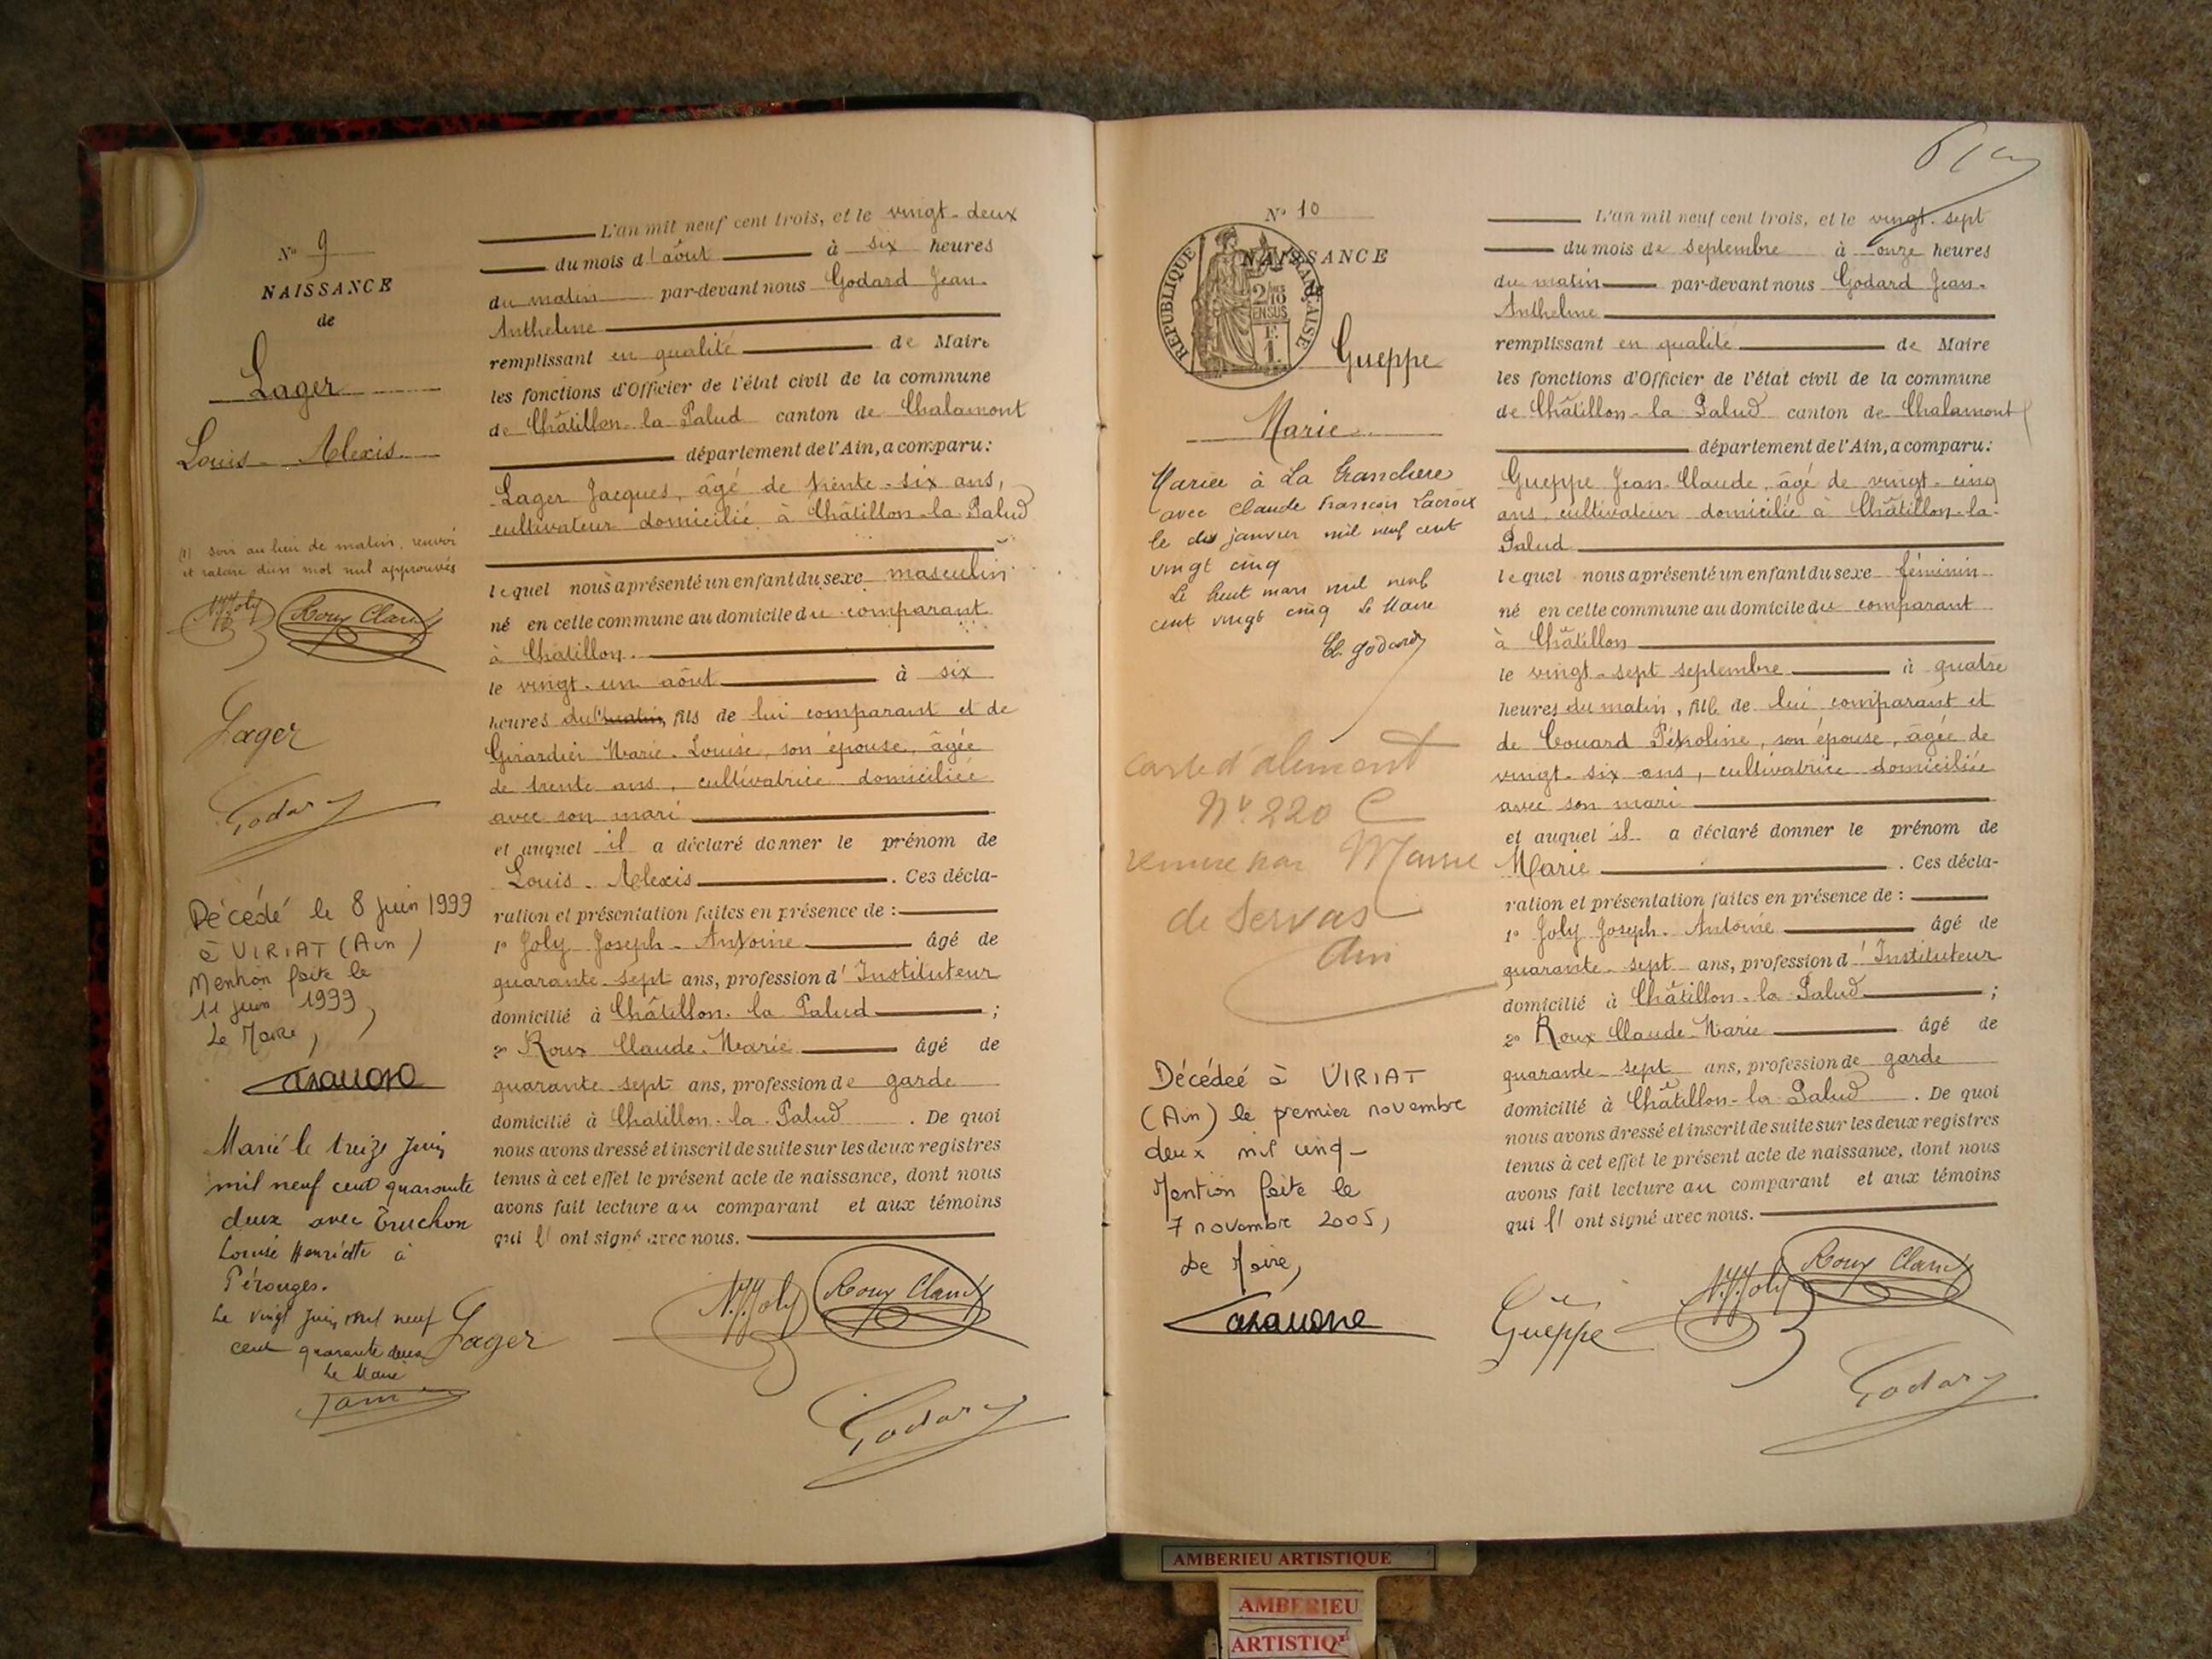 N° 9
NAISSANCE
de
Lager
Louis - Alexis
(1) soir au lieu de matin, renvoi
et rature d'un mot nul approuvés
N.J. Joly Roux Claude
Lager
Godard
Décédé le 8 juin 1999
à VIRIAT (Ain)
Mention faite le
11 juin 1999,
Le Maire,
Marié le treize juin
mil neuf cent quarante
deux avec Truchon
Louise Henriette à
Pérouges.
Le vingt juin mil neuf
cent quarante deux
Le Maire
L'an mil neuf cent trois, et le vingt-deux
du mois d'août à six heures
du matin par-devant nous Godard Jean-
Anthelme
remplissant en qualité de Maire
les fonctions d'Officier de l'état civil de la commune
de Châtillon-la-Palud canton de Chalamont
département de l'Ain, a comparu:
Lager Jacques, âgé de trente-six ans,
cultivateur domicilié à Châtillon-la-Palud
lequel nous a présenté un enfant du sexe masculin
né en cette commune au domicile du comparant
à Châtillon.
le vingt-un août à six
heures du (1) matin, fils de lui comparant et de
Girardier Marie-Louise, son épouse, âgée
de trente ans, cultivatrice domiciliée
avec son mari
et auquel il a déclaré donner le prénom de
Louis-Alexis. Ces décla-
ration et présentation faites en présence de :
1° Joly Joseph-Antoine âgé de
quarante-sept ans, profession d'Instituteur
domicilié à Châtillon-la-Palud ;
2° Roux Claude-Marie âgé de
quarante-sept ans, profession de garde
domicilié à Chatillon-la-Palud. De quoi
nous avons dressé et inscrit de suite sur les deux registres
tenus à cet effet le présent acte de naissance, dont nous
avons fait lecture au comparant et aux témoins
qui l'ont signé avec nous.
Lager N.J. Joly Roux Claude
Godard
N° 10
NAISSANCE
REPUBLIQUE FRANÇAISE
2/10 EN SUS
F. 1.
Gueppe
Marie
Mariée à La Tranclière
avec Claude François Lacroix
le dix janvier mil neuf cent
vingt cinq
Le huit mars mil neuf
cent vingt cinq Le Maire
Cl. Godard
Carte d'aliment
N° 220 C
remise par Mairie
de Servas
Ain
Décédée à VIRIAT
(Ain) le premier novembre
deux mil cinq-
Mention faite le
7 novembre 2005,
Le Maire,
L'an mil neuf cent trois, et le vingt-sept
du mois de septembre à onze heures
du matin par-devant nous Godard Jean-
Anthelme
remplissant en qualité de Maire
les fonctions d'Officier de l'état civil de la commune
de Châtillon-la-Palud canton de Chalamont
département de l'Ain, a comparu:
Gueppe Jean-Claude, âgé de vingt-cinq
ans, cultivateur domicilié à Châtillon-la-
Palud
lequel nous a présenté un enfant du sexe féminin
né en cette commune au domicile du comparant
à Châtillon
le vingt-sept septembre à quatre
heures du matin, fille de lui comparant et
de Couard Pétroline, son épouse, âgée de
vingt-six ans, cultivatrice domiciliée
avec son mari
et auquel il a déclaré donner le prénom de
Marie. Ces décla-
ration et présentation faites en présence de :
1° Joly Joseph-Antoine âgé de
quarante-sept ans, profession d'Instituteur
domicilié à Châtillon-la-Palud ;
2° Roux Claude-Marie âgé de
quarante-sept ans, profession de garde
domicilié à Châtillon-la-Palud. De quoi
nous avons dressé et inscrit de suite sur les deux registres
tenus à cet effet le présent acte de naissance, dont nous
avons fait lecture au comparant et aux témoins
qui l'ont signé avec nous.
Gueppe N.J. Joly Roux Claude
Godard
AMBERIEU ARTISTIQUE
AMBERIEU
ARTISTIQU